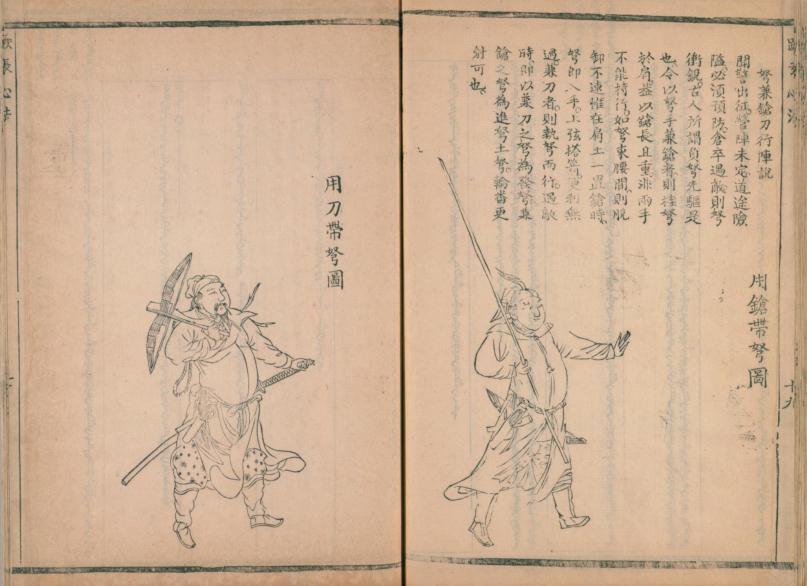 蹶張心法
弩兼鎗刀行陣説
聞警出征營陣未定道途險
隘必須預防倉卒遇敵則弩
衝鋭古人所謂負弩先驅是
也今以弩手兼鎗者則挂弩
於肩葢以鎗長且重非兩手
不能持行如弩束腰間則脱
卸不速惟在肩上一置鎗時
弩即入手上弦搭箭更利無
過兼刀者則執弩而行遇敵
時即以兼刀之弩為發弩兼
鎗之弩為進弩上弩輪畨更
射可也
用鎗帶弩圖
十九
用刀帶弩圖
張心法